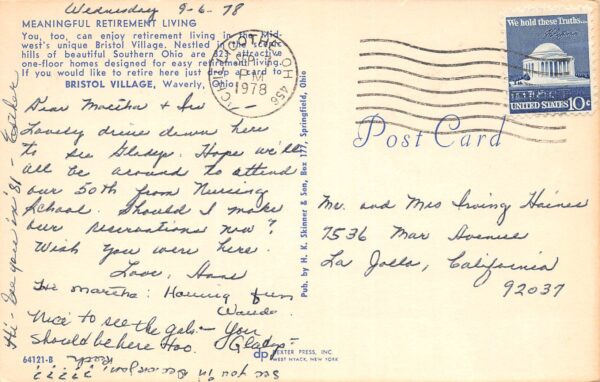 Wednesday 9-6-78
MEANINGFUL RETIREMENT LIVING
You, too, can enjoy retirement living in the Mid-
west's unique Bristol Village. Nestled in the scenic
hills of beautiful Southern Ohio are 323 attractive
one-floor homes designed for easy retirement living.
If you would like to retire here just drop a card to
BRISTOL VILLAGE, Waverly, Ohio
Dear Martha + Irv -
Lovely drive down here
to see Gladys. Hope we'll
all be around to attend
our 50th from Nursing
School. Should I make
our reservations now?
Wish you were here.
Love,
Hi Martha: Having fun
Wanda
Nice to see the gals - You
should be here too.
Gladys
64121-B
See you in December,
Ruth
Hi - See you in '81 - Esther
Pub. by H. K. Skinner & Son, Box 177, Springfield, Ohio
DEXTER PRESS, INC.
WEST NYACK, NEW YORK
dp
OH 456
PM
1978
We hold these Truths...
UNITED STATES 10c
Post Card
Mr. and Mrs Irving Haines
7536 Mar Avenue
La Jolla, California
92037